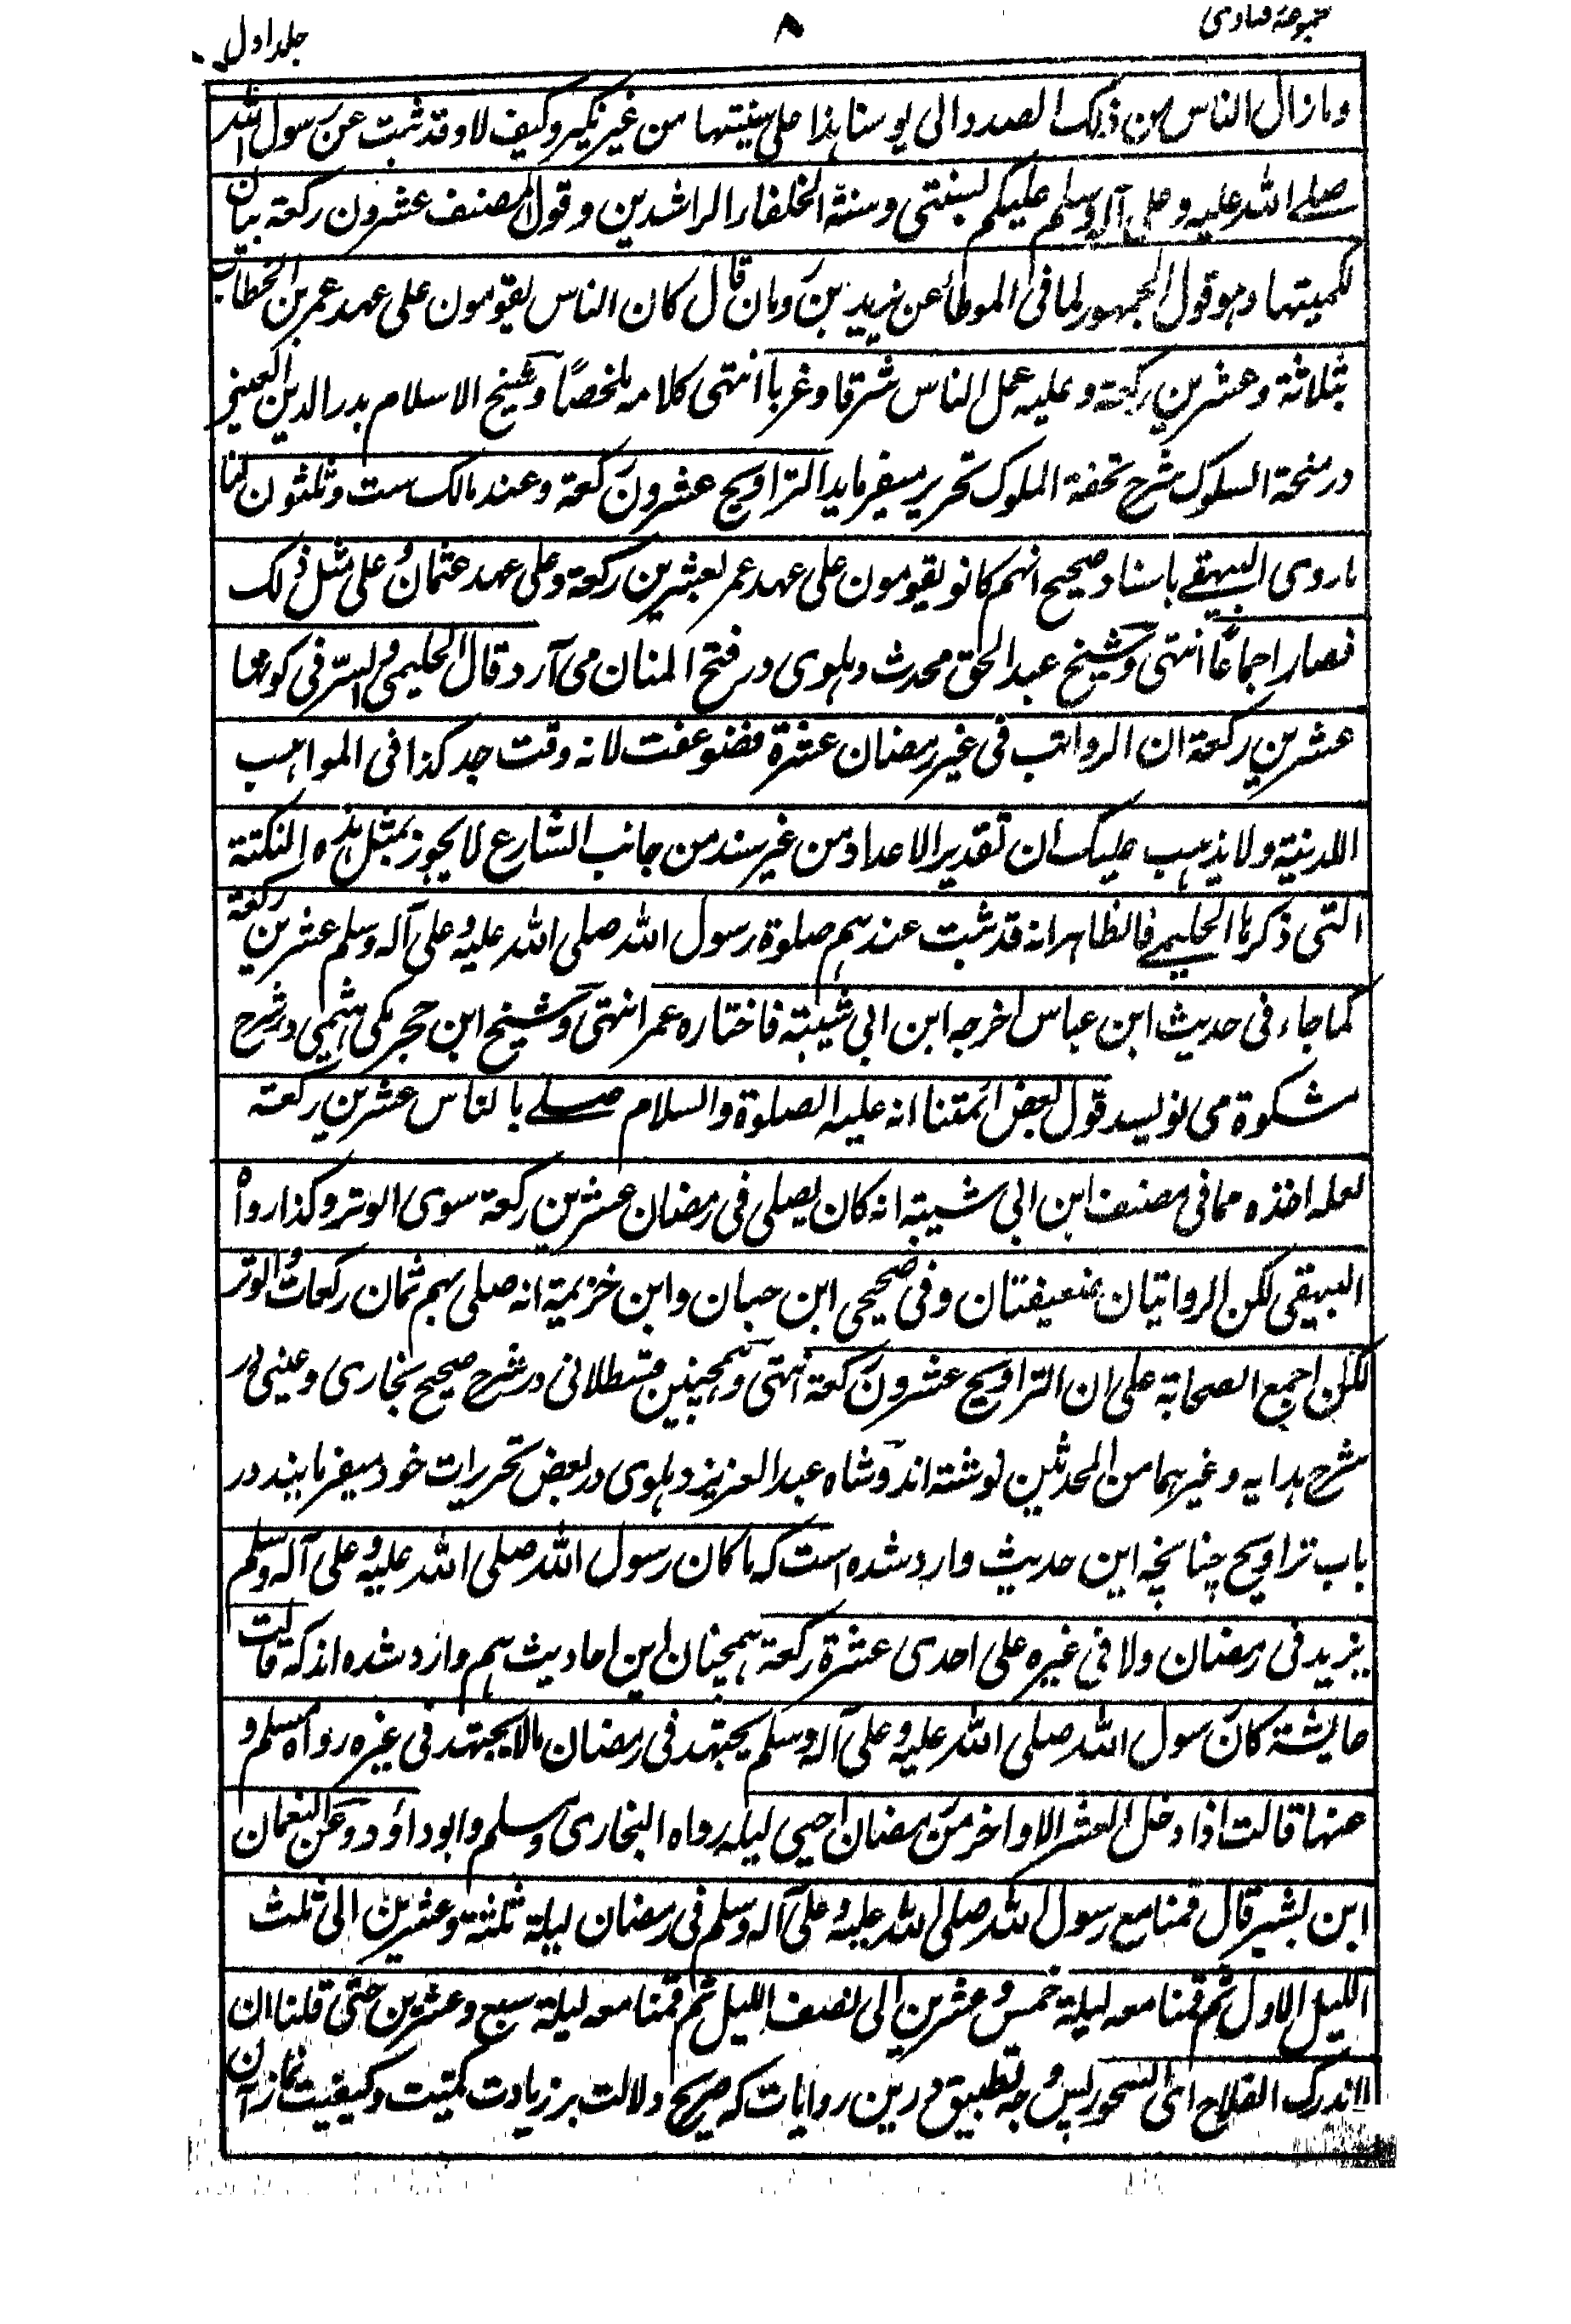 مجموعۂ فتاوی ۸ جلد اول
وما زال الناس من ذلک الصدر الی یومنا ہذا علی سنیتہا من غیر نکیر وکیف لا وقد ثبت عن رسول اللہ
صلے اللہ علیہ وعلی آلہ وسلم علیکم بسنتی وسنۃ الخلفاء الراشدین وقول المصنف عشرون رکعۃ بیان
لکمیتہا وہو قول الجمہور لما فی الموطأ عن یزید بن رومان قال کان الناس یقومون علی عہد عمر بن الخطاب
بثلاثۃ وعشرین رکعۃ وعلیہ عمل الناس شرقا وغربا انتہی کلامہ ملخصًا وشیخ الاسلام بدر الدین العینی
در منحۃ السلوک شرح تحفۃ الملوک تحریر میفرماید التراویح عشرون رکعۃ وعند مالک ست وثلثون لنا
ما روی البیہقے باسناد صحیح انہم کانو یقومون علی عہد عمر بعشرین رکعۃ وعلی عہد عثمان وعلی مثل ذلک
فصار اجماعًا انتہی وشیخ عبد الحق محدث دہلوی در فتح المنان می آرد قال الحلیمی والسر فی کونہا
عشرین رکعۃ ان الرواتب فی غیر رمضان عشرۃ فضوعفت لانہ وقت جد کذا فی المواہب
اللدنیۃ ولا یذہب علیک ان تقدیر الاعداد من غیر سند من جانب الشارع لا یجوز بمثل ہذہ النکتۃ
التی ذکرہا الحلیمے فالظاہر انہ قد ثبت عندہم صلوۃ رسول اللہ صلی اللہ علیہ وعلی آلہ وسلم عشرین رکعۃ
کما جاء فی حدیث ابن عباس اخرجہ ابن ابی شیبۃ فاختارہ عمر انتہی وشیخ ابن حجر مکی ہیثمی در شرح
مشکوۃ می نویسد قول بعض ائمتنا انہ علیہ الصلوۃ والسلام صلے بالناس عشرین رکعۃ
لعلہ اخذہ مما فی مصنف ابن ابی شیبۃ انہ کان یصلی فی رمضان عشرین رکعۃ سوی الوتر وکذا رواہ
البیہقی لکن الروایتان ضعیفتان وفی صحیحی ابن حبان وابن خزیمۃ انہ صلی بہم ثمان رکعات والوتر
لکن اجمع الصحابۃ علی ان التراویح عشرون رکعۃ انتہی وہمچنین قسطلانی در شرح صحیح بخاری وعینی در
شرح ہدایہ وغیرہما من المحدثین نوشتہ اند وشاہ عبد العزیز دہلوی در بعض تحریرات خود میفرمایند در
باب تراویح چنانچہ این حدیث وارد شدہ است کہ ما کان رسول اللہ صلی اللہ علیہ وعلی آلہ وسلم
یزید فی رمضان ولا فی غیرہ علی احدی عشرۃ رکعۃ ہمچنان این احادیث ہم وارد شدہ اند کہ قالت
عایشۃ کان رسول اللہ صلی اللہ علیہ وعلی آلہ وسلم یجتہد فی رمضان مالا یجتہد فی غیرہ رواہ مسلم و
عنہا قالت اذا دخل العشر الاواخر من رمضان احیی لیلہ رواہ البخاری ومسلم وابو داؤد وعن النعمان
ابن بشیر قال قمنا مع رسول اللہ صلی اللہ علیہ وعلی آلہ وسلم فی رمضان لیلۃ ثلثۃ وعشرین الی ثلث
اللیل الاول ثم قمنا معہ لیلۃ خمس وعشرین الی نصف اللیل ثم قمنا معہ لیلۃ سبع وعشرین حتی قلنا ان
لا ندرک الفلاح ای السحور پس وجہ تطبیق درین روایات کہ صریح دلالت بر زیادت کمیت وکیفیت نماز آن